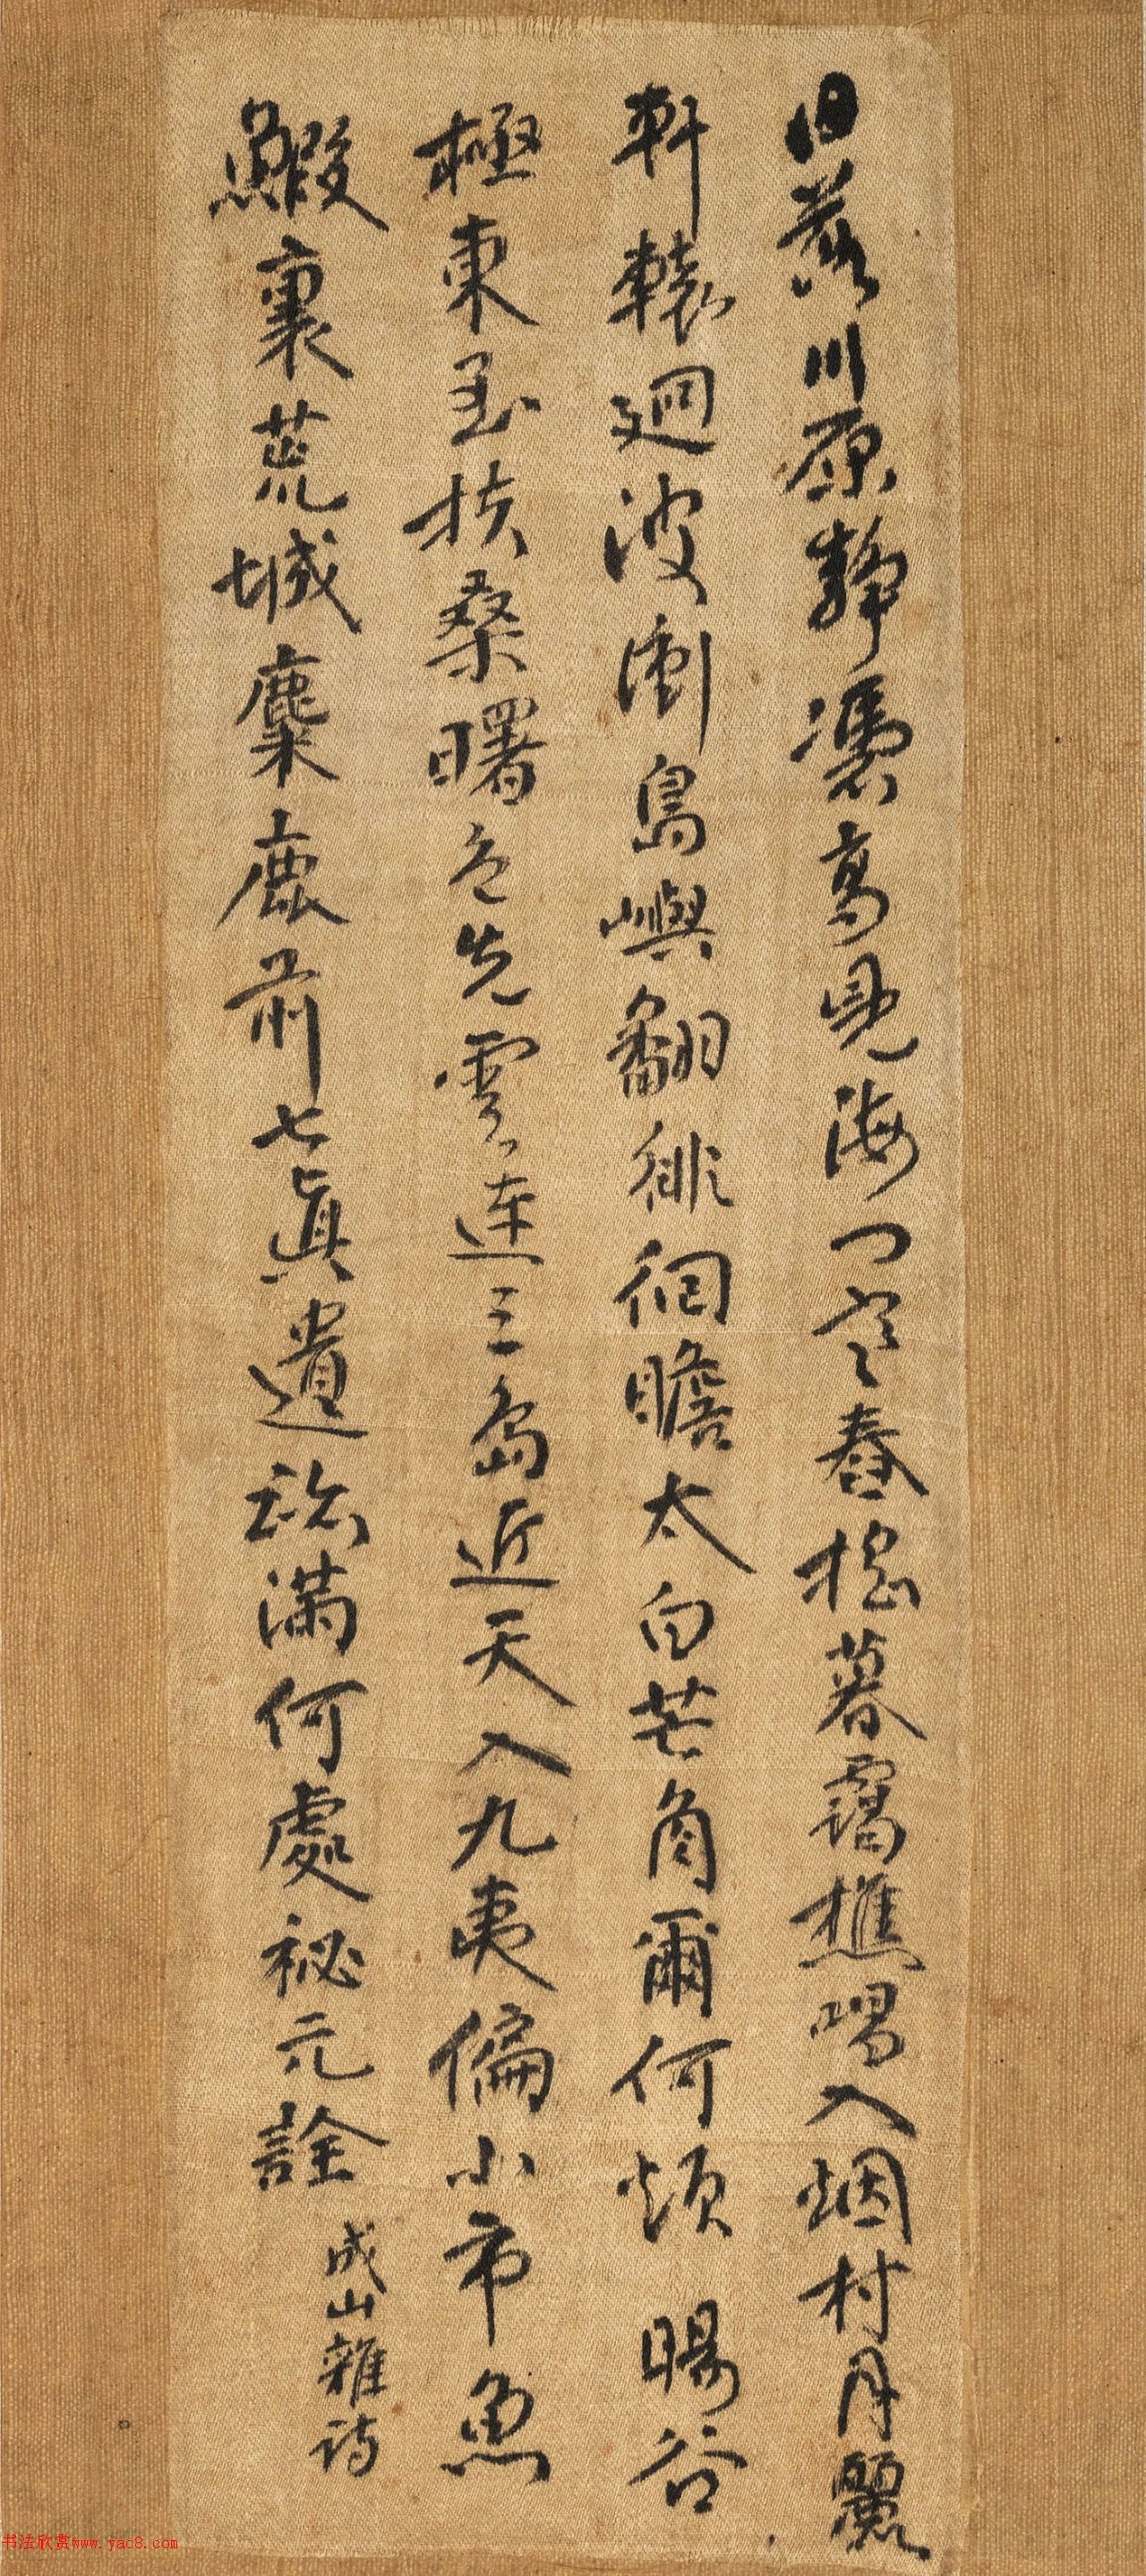 日落川原靜憑高見海門寒舂搖暮靄樵唱入烟村月麗
軒轅廻波衝島嶼翻徘徊瞻太白芒角爾何煩 暘谷
極東至扶桑曙色先雲連三島近天入九夷偏小市魚
鰕裏荒城麋鹿前七眞遺跡滿何處祕元詮
成山雜詩
书法欣赏www.yac8.com